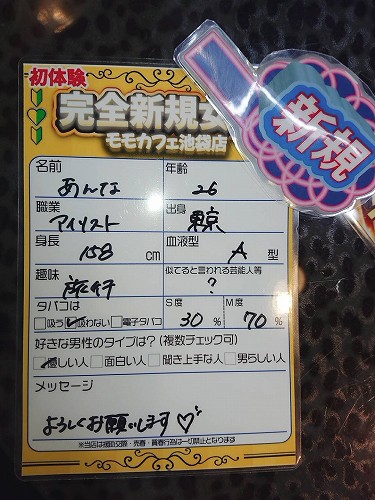 初体験
完全新規女
モモカフェ池袋店
新規
名前 年齢
あんな 26
職業 出身
アイリスト 東京
身長 血液型
158 cm A 型
趣味 似てると言われる芸能人等
旅行 ?
タバコは S度 M度
吸う 吸わない 電子タバコ 30 % 70 %
好きな男性のタイプは?(複数チェック可)
優しい人 面白い人 聞き上手な人 男らしい人
メッセージ
よろしくお願いします♡
※当店は援助交際・売春・買春行為は一切禁止となります